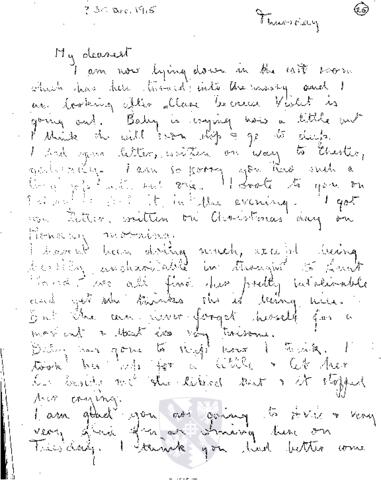 ? 30 Dec. 1915
Thursday
26
My dearest
I am now lying down in the exit room
which has been turned into the nursery and I
am looking after Clare because Violet is
going out. Baby is crying now a little but
I think she will soon stop & go to sleep.
I had your letter, written on way to Chester,
yesterday. I am so sorry you had such a
I wrote to you on
it in the evening. I got
your letter, written on Christmas day on
Monday morning.
I haven't been doing much, except being
beastly uncharitable in thought to Aunt
we all find her pretty intolerable
and yet she thinks she is being nice.
But she can never forget herself for a
moment & that is very tiresome.
Baby has gone to sleep now I think. I
took her up for a little & let her
lie beside me she liked that & it stopped
her crying.
I am glad you are going to & very
very glad you are coming here on
Tuesday. I think you had better come